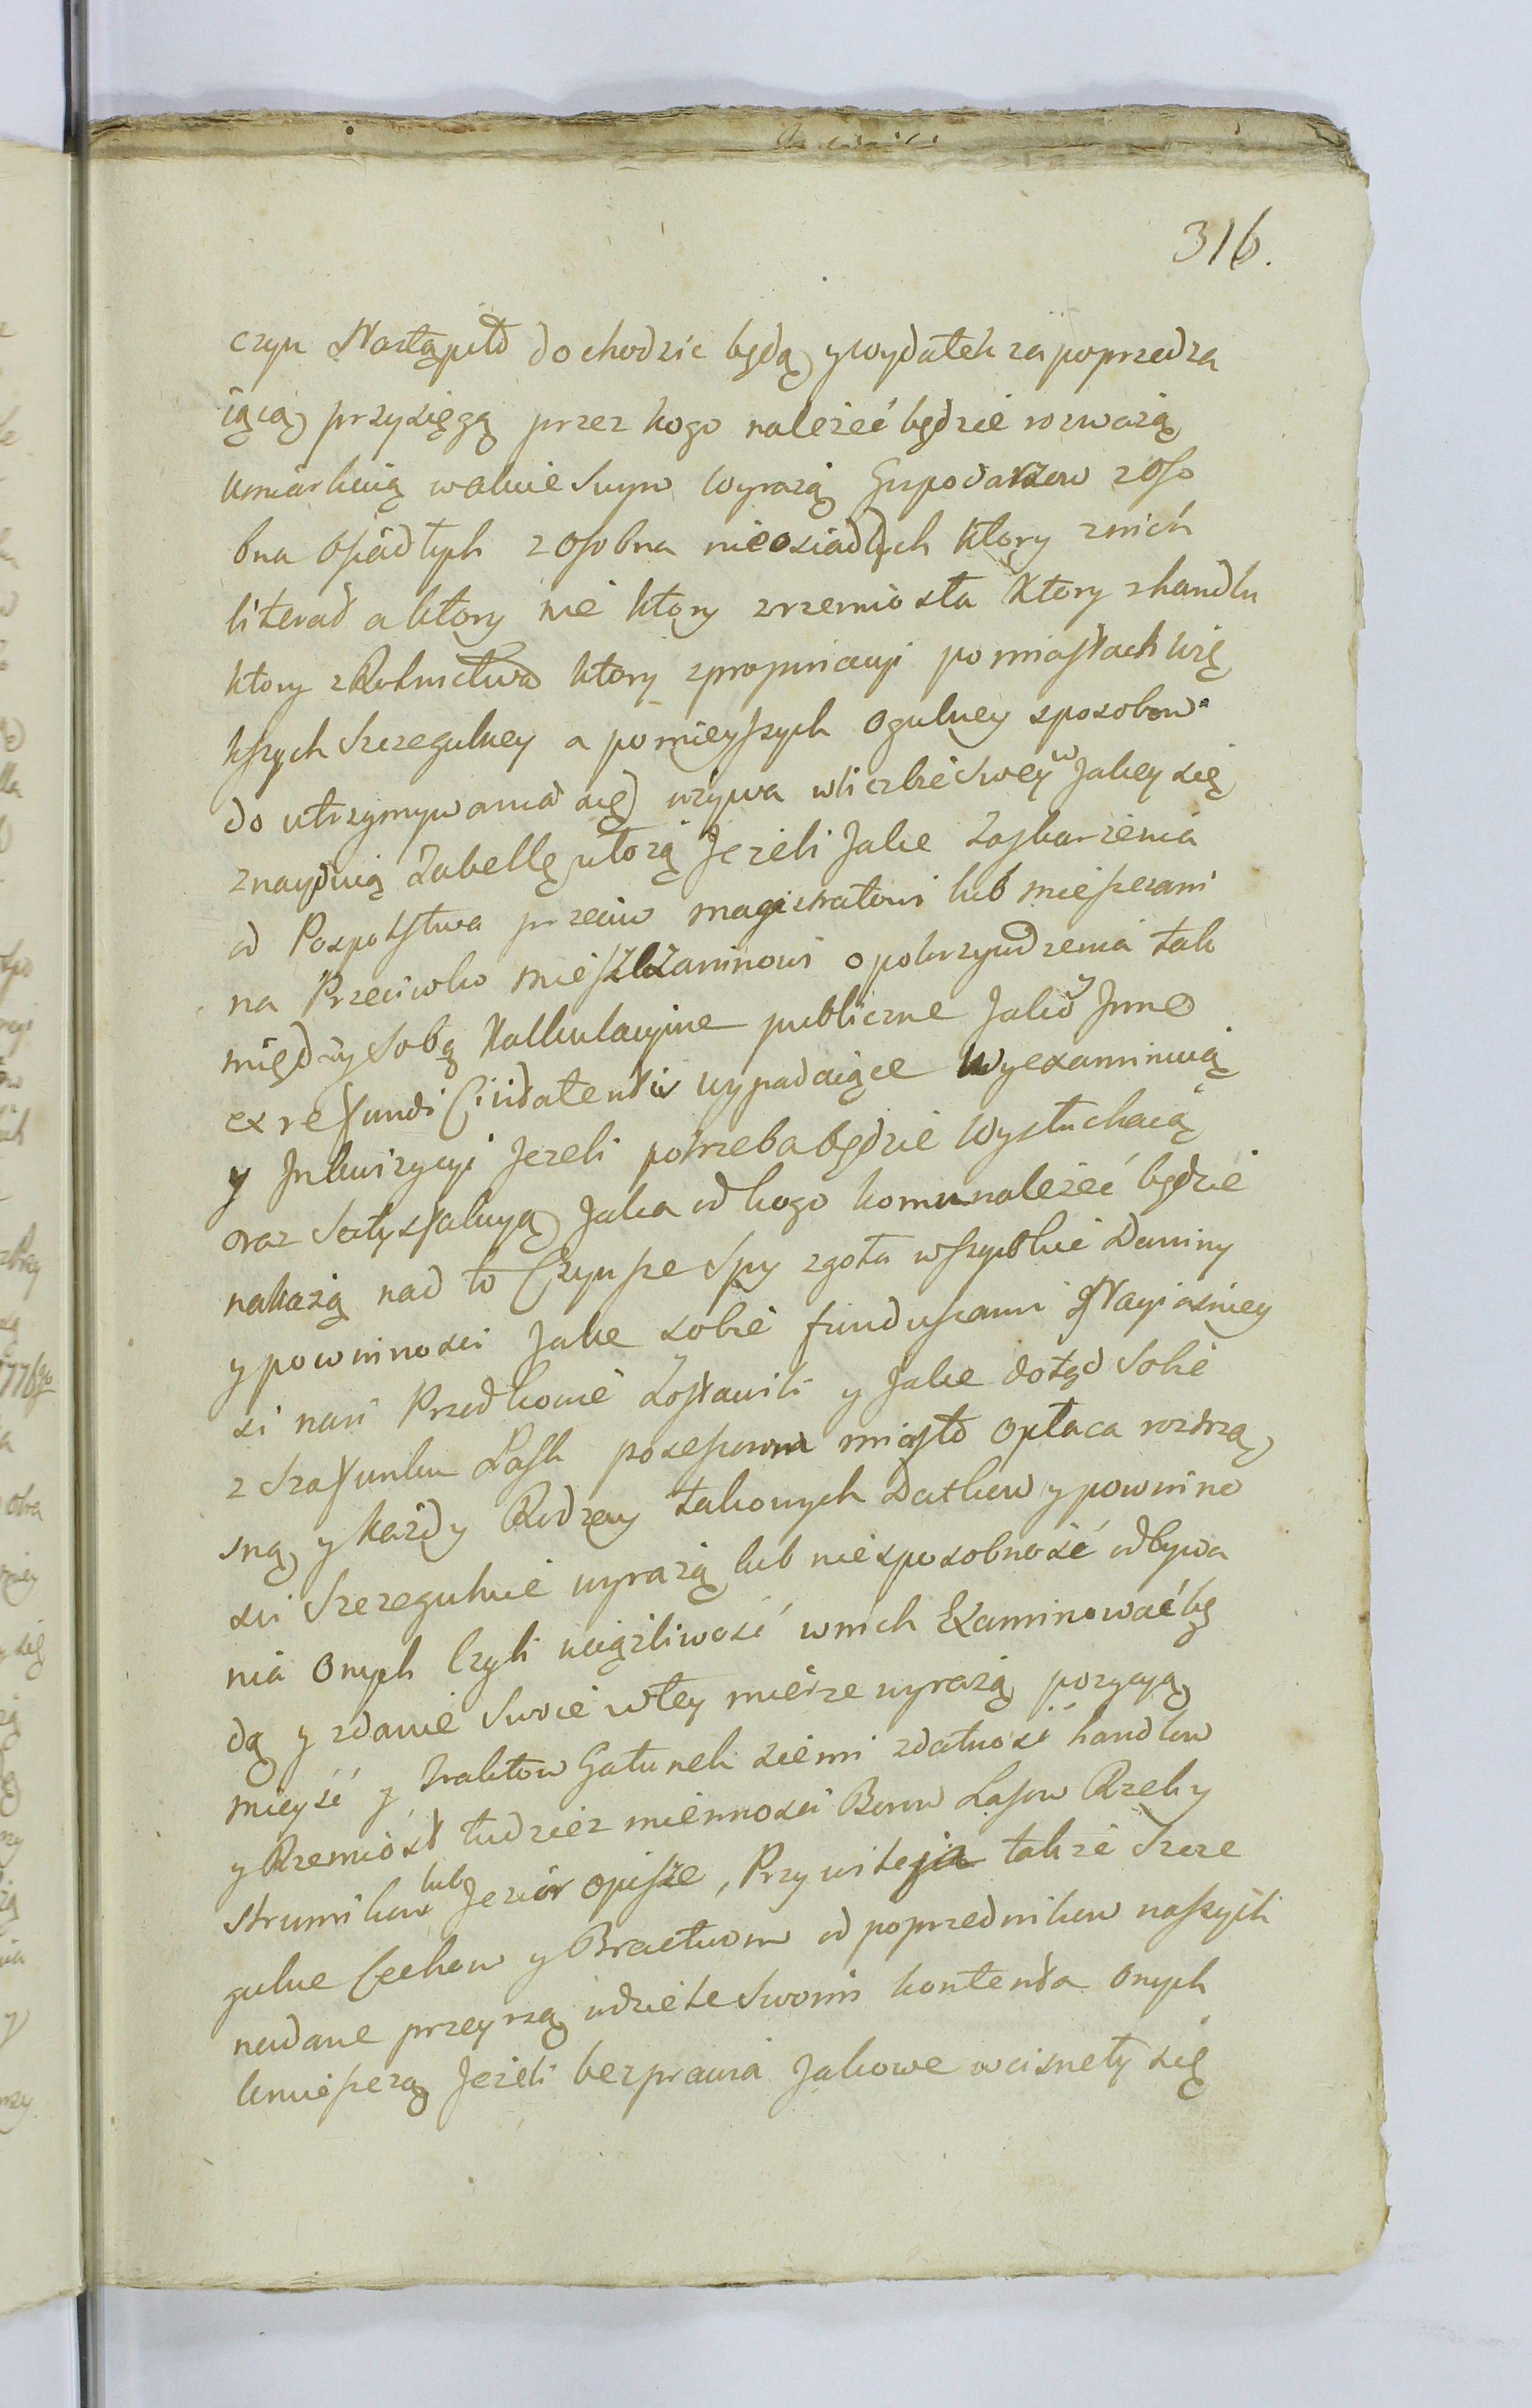 316.
czyn Nastąpiło dochodzic będą y wydatek za poprzedza
iącą przysięgą przez kogo należeć będzie rozważą
umiarkuią w akcie swym wyrażą Gospodarzow z oso
bna osiadłych z osobna nieosiadłych ktory z nich
literat a ktory nie ktory z rzemiosła ktory z handlu
ktory z Rolnictwa ktory z propinacyi po miastach wię
kszych szczegulney a pomieyszych ogulney sposobow
do utrzymywania się używa w liczbie swey w Jakey się
znayduią Tabellę ułożą Jezeli Jakie Zaskarzenia
od Pospolstwa przeciw magistratowi lub mieszczani
na Przeciwko mieszczaninowi o pokrzywdzenia tak
między sobą Kalkulacyine publiczne Jako y Jnne
ex re fundi Ciuitatensis wypadaiące wyexaminuią
y Jnkwizycyi Jezeli potrzeba będzie wysłuchaią
oraz satysfakcyą Jaka od kogo komu należeć będzie
nakażą nad to Czynsze Spy zgoła wszystkie Daniny
y powinnosci Jakie sobie funduszami Nayiasniey
si nasi Przodkowie Zostawili y Jakie dotąd Sobie
z szafunku Łask posessorom miasto opłaca roztrzą
sną y każdy Rodzay takowych Datkow y powinno
sci Szczegulnie wyrażą lub niesposobność odbywa
nia onych Czyli uciążliwość w nich Examinować bę
dą y zdanie swoie w tey mierze wyrażą pozycyą
mieysc y Traktow Gatunek ziemi zdatność handlow
y Rzemiosł tudzież mienności Borow Lasow Rzek y
strumikow lub Jezior opisze, Przywileja także Szcze
gulne Cechow y Bractwom od poprzednikow naszych
nadane przeyrzą w dziele swoim kontenta onych
umieszczą Jeżeli bezprawia Jakowe wcisneły się